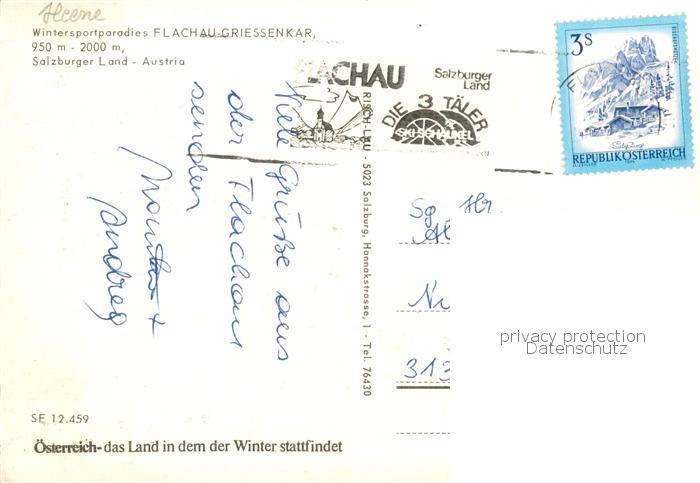 Heene
Wintersportparadies FLACHAU-GRIESSENKAR,
950 m - 2000 m,
Salzburger Land - Austria
FLACHAU
Salzburger
Land
DIE 3 TÄLER
SKISCHAUKEL
3 S
REPUBLIK ÖSTERREICH
Viele Grüße aus
der Flachau
senden
+
Andrea
RISCH-LAU - 5023 Salzburg, Hannakstrasse, 1 - Tel. 76430
Sg. Hr.
313
privacy protection
Datenschutz
SE 12.459
Österreich-das Land in dem der Winter stattfindet